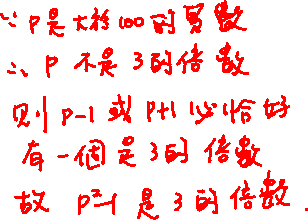 ∵ P是大於100的質數
∴ P 不是3的倍數
則 P-1 或 P+1 必恰好
有一個是3的倍數
故 P²-1 是3的倍數.